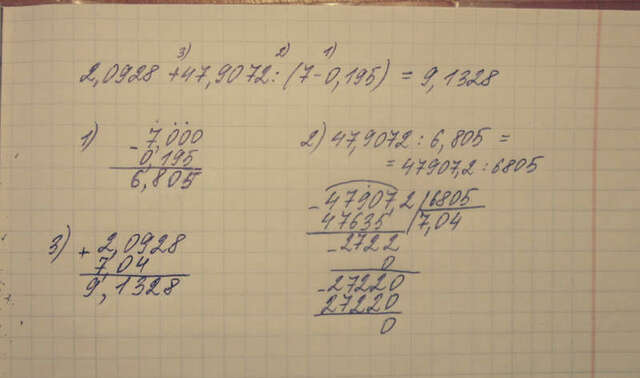 3) 2) 1)
2,0928 + 47,9072 : (7 - 0,195) = 9,1328
1)
- 7,000
0,195
6,805
2) 47,9072 : 6,805 =
= 47907,2 : 6805
- 47907,2 | 6805
47635 | 7,04
- 2722
0
- 27220
27220
0
3)
+ 2,0928
7,04
9,1328